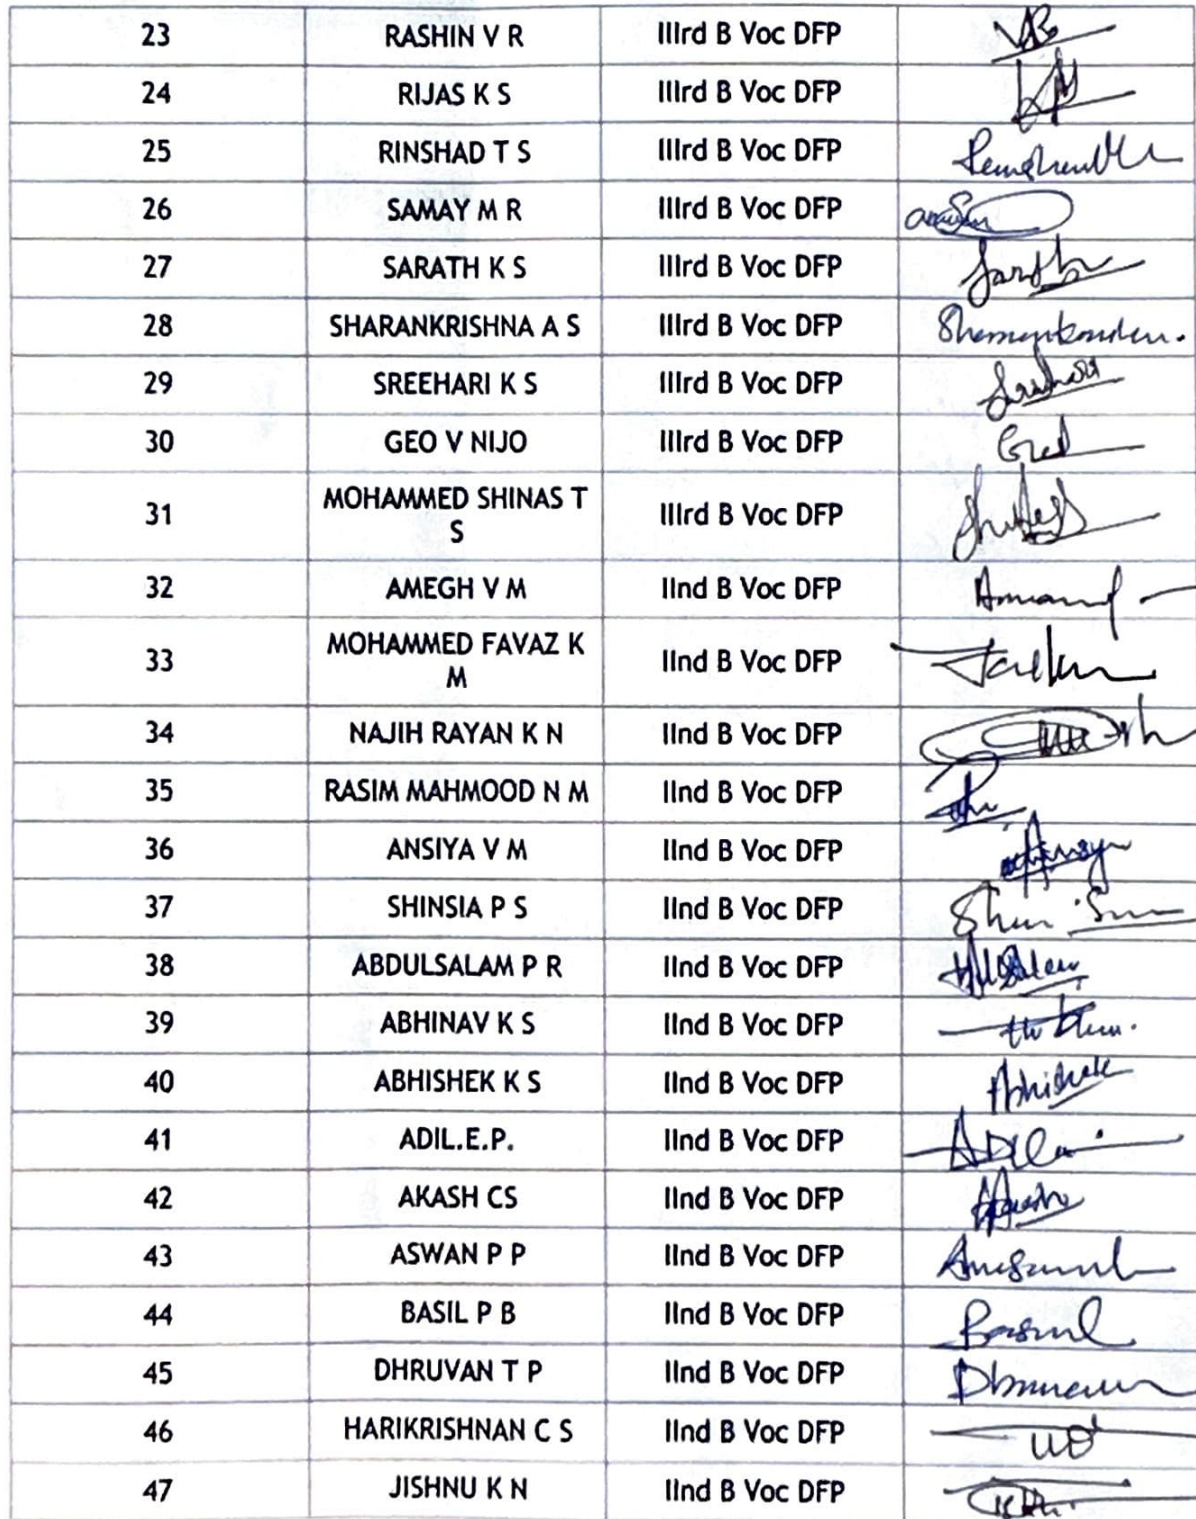 23 RASHIN V R IIIrd B Voc DFP
24 RIJAS K S IIIrd B Voc DFP
25 RINSHAD T S IIIrd B Voc DFP
26 SAMAY M R IIIrd B Voc DFP
27 SARATH K S IIIrd B Voc DFP
28 SHARANKRISHNA A S IIIrd B Voc DFP
29 SREEHARI K S IIIrd B Voc DFP
30 GEO V NIJO IIIrd B Voc DFP
31 MOHAMMED SHINAS T IIIrd B Voc DFP
S
32 AMEGH V M IInd B Voc DFP
33 MOHAMMED FAVAZ K IInd B Voc DFP
M
34 NAJIH RAYAN K N IInd B Voc DFP
35 RASIM MAHMOOD N M IInd B Voc DFP
36 ANSIYA V M IInd B Voc DFP
37 SHINSIA P S IInd B Voc DFP
38 ABDULSALAM P R IInd B Voc DFP
39 ABHINAV K S IInd B Voc DFP
40 ABHISHEK K S IInd B Voc DFP Abhishek
41 ADIL.E.P. IInd B Voc DFP
42 AKASH CS IInd B Voc DFP
43 ASWAN P P IInd B Voc DFP
44 BASIL P B IInd B Voc DFP
45 DHRUVAN T P IInd B Voc DFP
46 HARIKRISHNAN C S IInd B Voc DFP
47 JISHNU K N IInd B Voc DFP